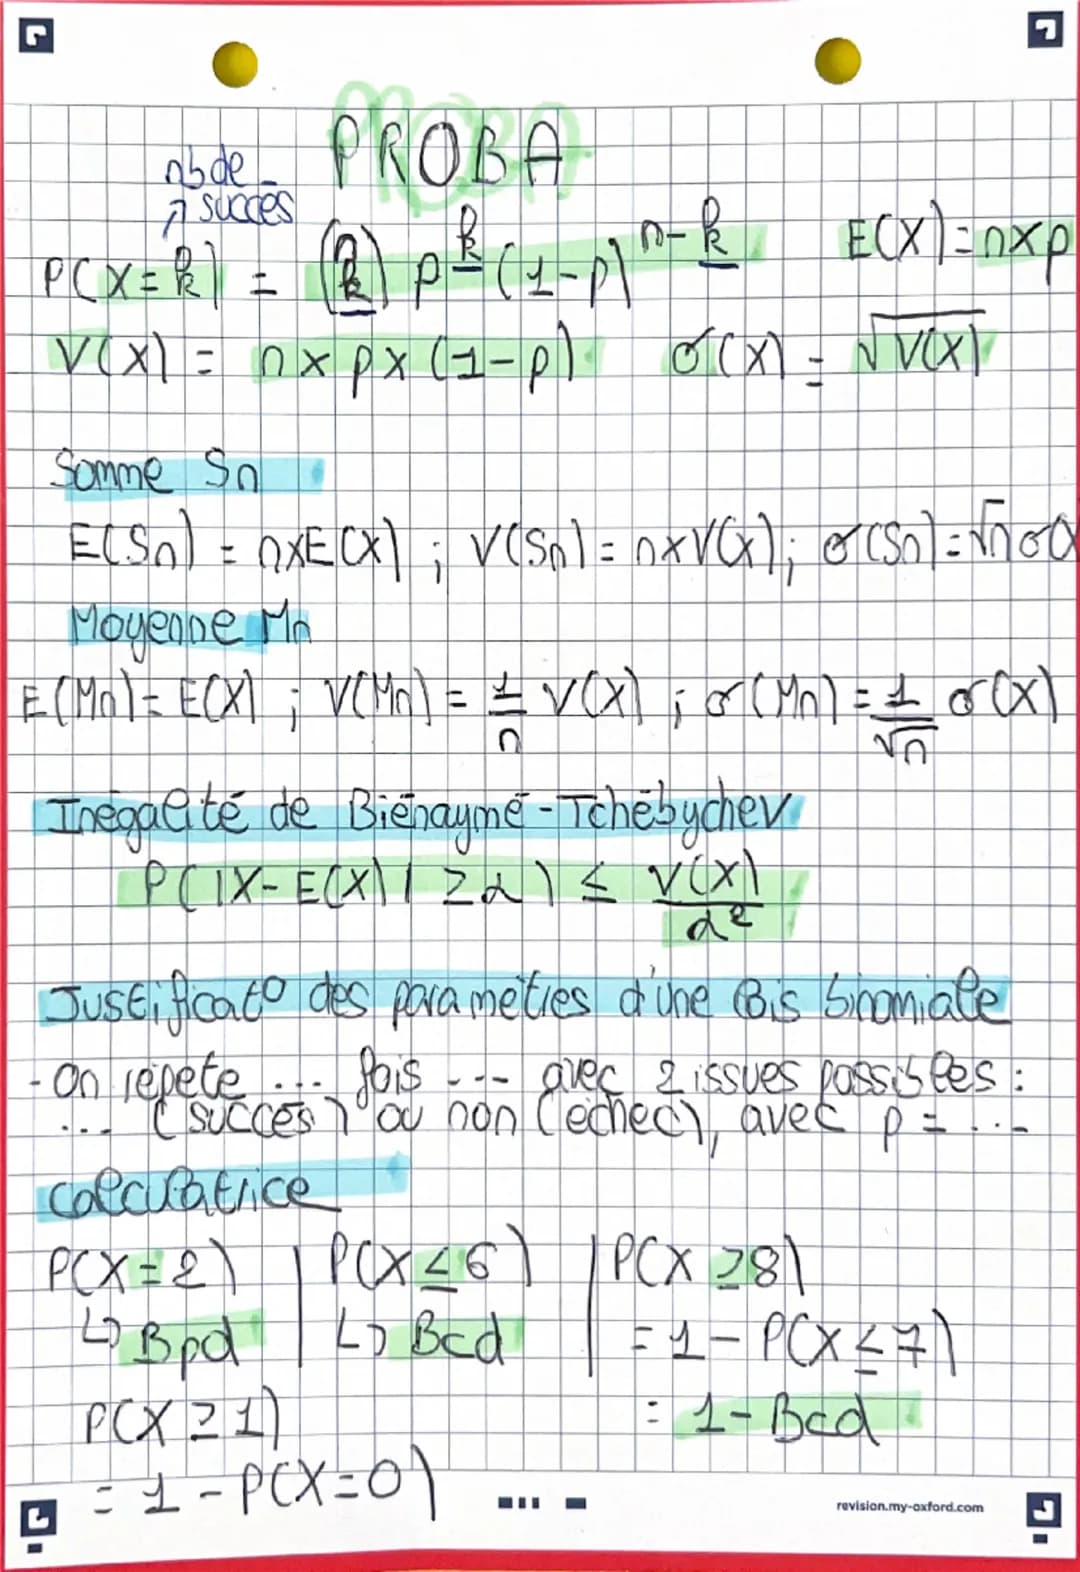 PROBA
nb de
↗ succès
P(X=k) = (n k) p^k (1-p)^n-k E(X)=n×p
V(X) = n×p×(1-p) σ(X) = √V(X)
Somme Sn
E(Sn) = n×E(X) ; V(Sn) = n×V(X) ; σ(Sn) = √n σ(X
Moyenne Mn
E(Mn) = E(X) ; V(Mn) = 1/n V(X) ; σ(Mn) = 1/√n σ(X)
Inégalité de Biénaymé-Tchébychev
P(|X-E(X)| ≥ α) ≤ V(X)/α²
Justificat° des paramètres d'une lois binomiale
- On répète ... fois --- avec 2 issues possibles :
... (succès) ou non (échec), avec p = ...
calculatrice
P(X=2) | P(X≤6) | P(X≥8)
↳ Bpd | ↳ Bcd | = 1 - P(X≤7)
P(X≥1) = 1-Bcd
= 1 - P(X=0)
revision.my-oxford.com